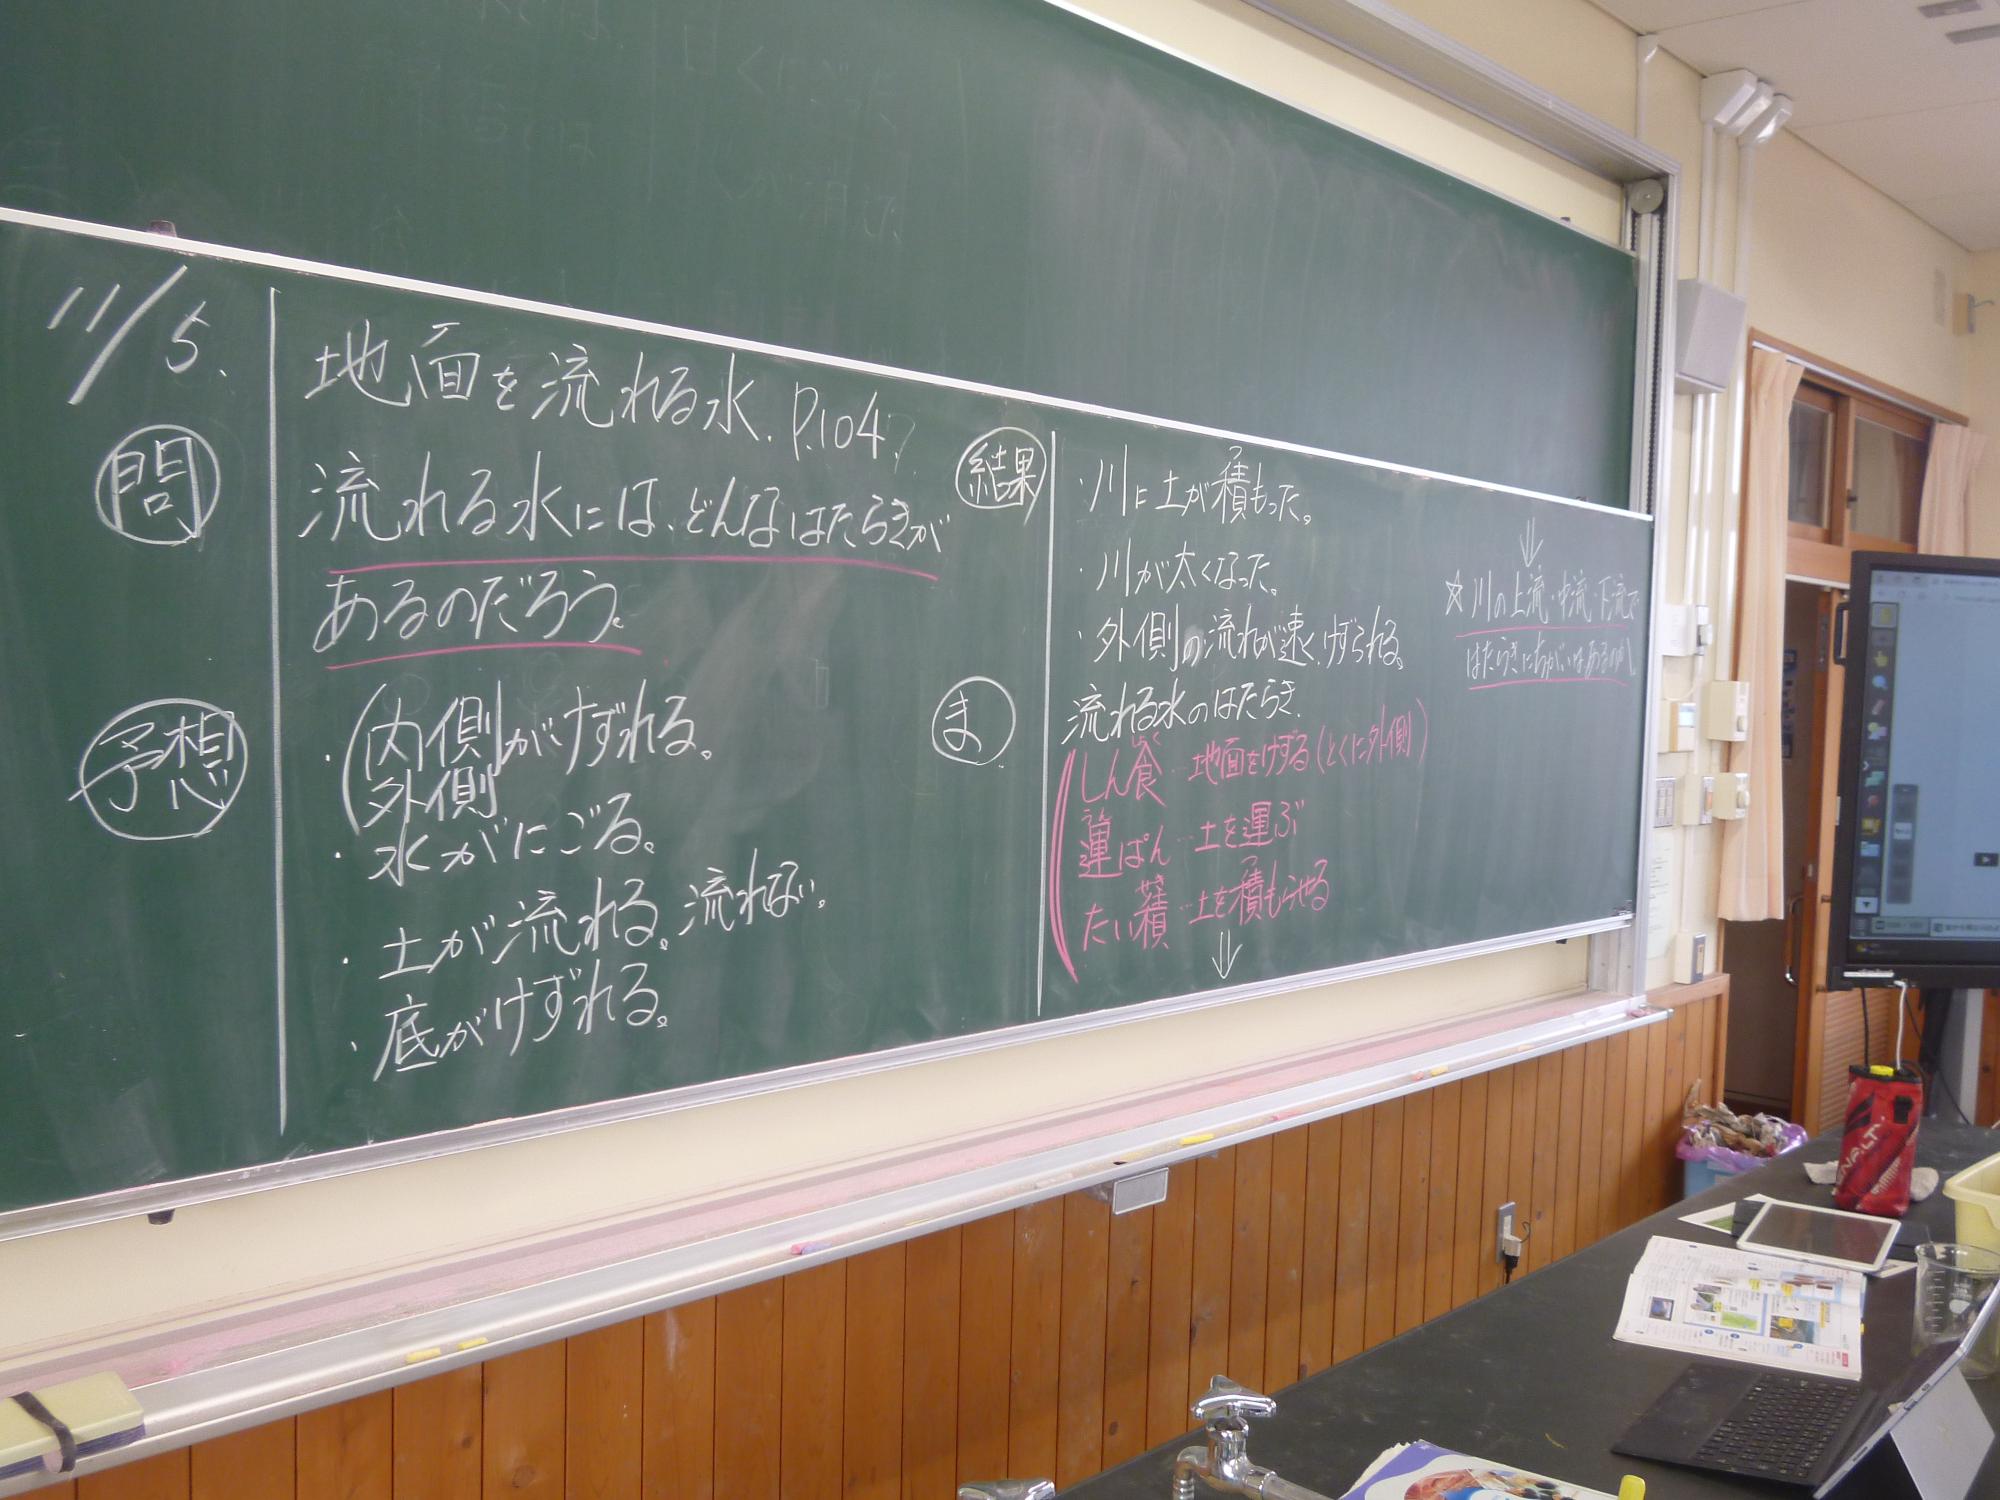 11/5.
地面を流れる水. P.104
問
流れる水には、どんなはたらきが
あるのだろう。
予想
・内側がけずれる。
外側
・水がにごる。
・土が流れる。流れない。
・底がけずれる。
結果
・川に土が積もった。
・川が太くなった。
・外側の流れが速く、けずられる。
ま
流れる水のはたらき.
しん食…地面をけずる(とくに外側)
しょく
運ぱん…土を運ぶ
うん
たい積…土を積もらせる
せき
⇓
⇓
☆川の上流・中流・下流で
はたらきにちがいはあるのか。